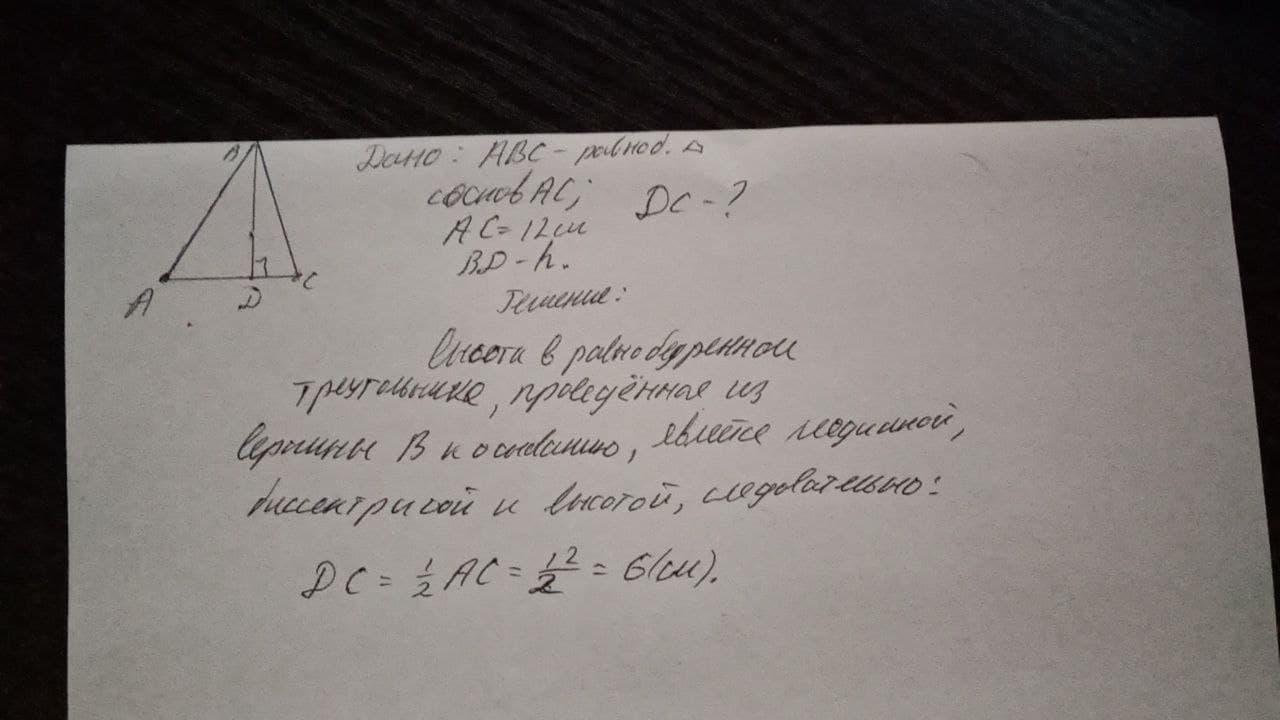 B
A
D
C
Дано: ABC - равноб. △
с основ AC;
AC = 12 см
BD - h.
DC - ?
Решение:
Высота в равнобедренном
треугольнике, проведённая из
вершины B к основанию, является медианой,
биссектрисой и высотой, следовательно:
DC = 1/2 AC = 12/2 = 6 (см).